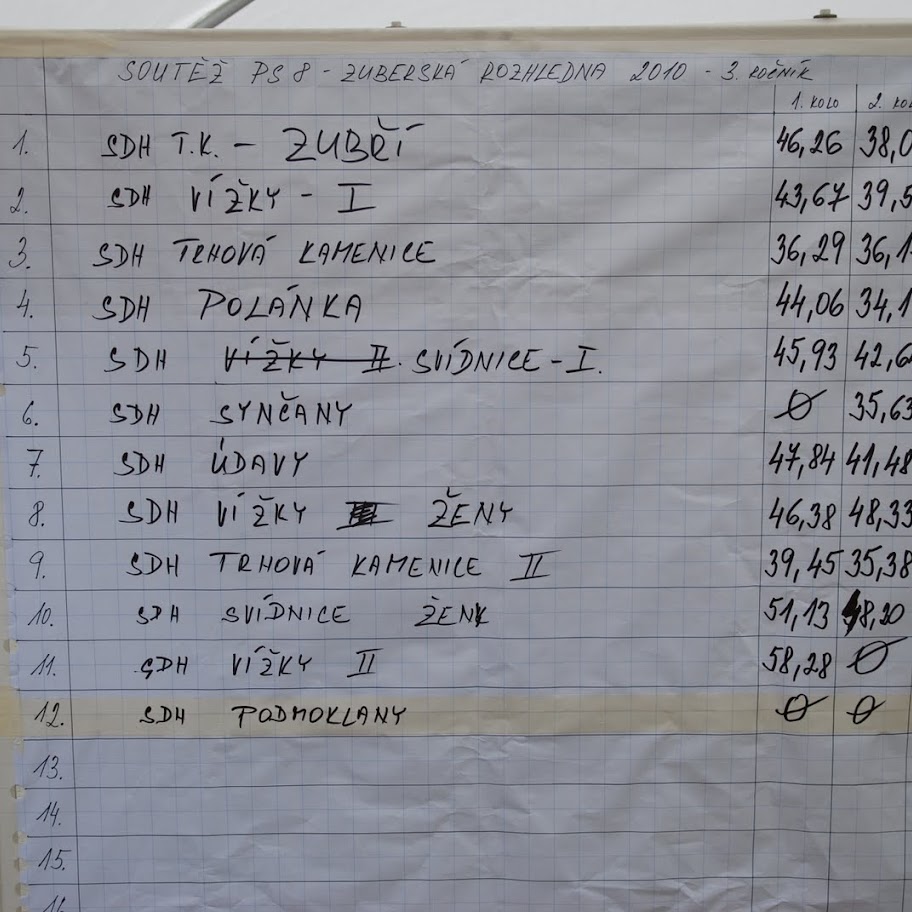 SOUTĚŽ PS 8 - ZUBERSKÁ ROZHLEDNA 2010 - 3. ROČNÍK
1. KOLO 2. KOL
1. SDH T.K. - ZUBŘÍ 46,26 38,0
2. SDH VÍŽKY - I 43,67 39,5
3. SDH TRHOVÁ KAMENICE 36,29 36,1
4. SDH POLÁNKA 44,06 34,1
5. SDH VÍŽKY II. SVÍDNICE - I. 45,93 42,6
6. SDH SYNČANY Ø 35,63
7. SDH ÚDAVY 47,84 41,48
8. SDH VÍŽKY ŽENY 46,38 48,33
9. SDH TRHOVÁ KAMENICE II 39,45 35,38
10. SDH SVÍDNICE ŽENY 51,13 48,20
11. SDH VÍŽKY II 58,28 Ø
12. SDH PODMOKLANY Ø Ø
13.
14.
15.